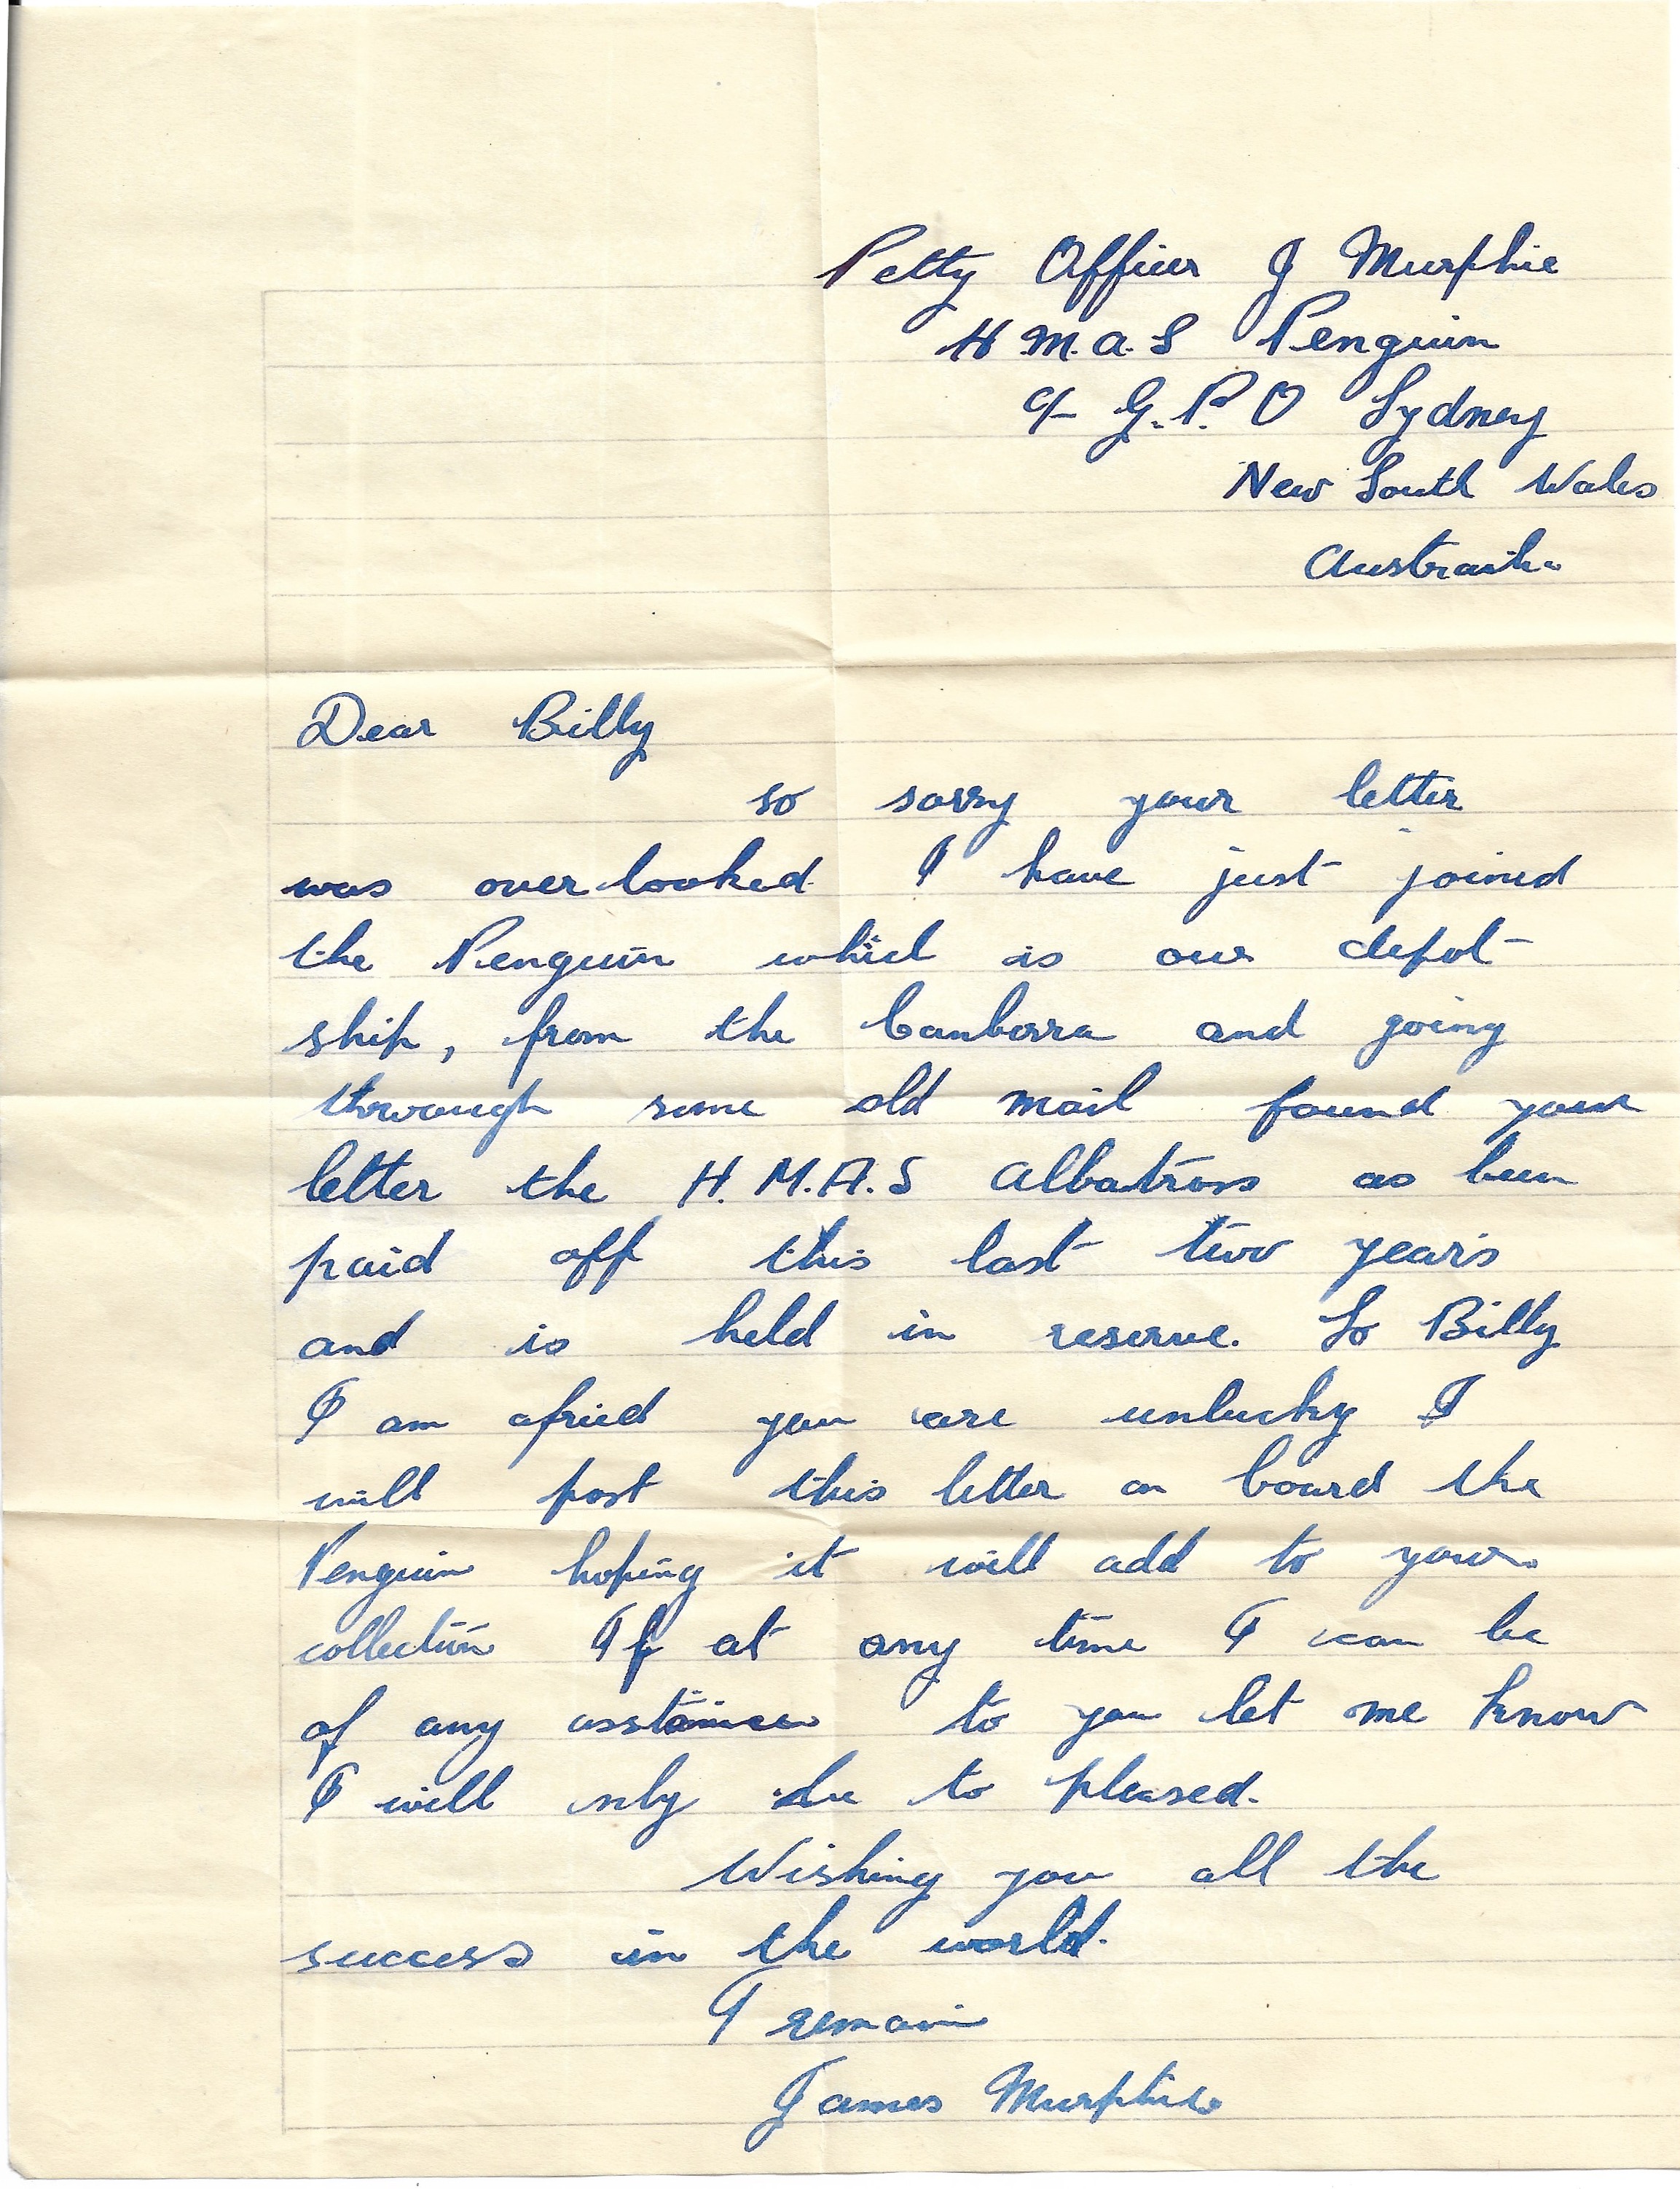 Petty Officer J Murphie
H M.A.S Penguin
c/- G.P.O Sydney
New South Wales
Austraila
Dear Billy
so sorry your letter
was over looked. I have just joined
the Penguin which is our depot
ship, from the Canberra and going
through some old mail found your
letter the H.M.A.S Albatross as been
paid off this last two years
and is held in reserve. So Billy
I am afried you are unlucky I
will post this letter on board the
Penguin hoping it will add to your
collection If at any time I can be
of any to you let me know
I will only be to pleased.
Wishing you all the
success in the world.
I remain
James Murphie